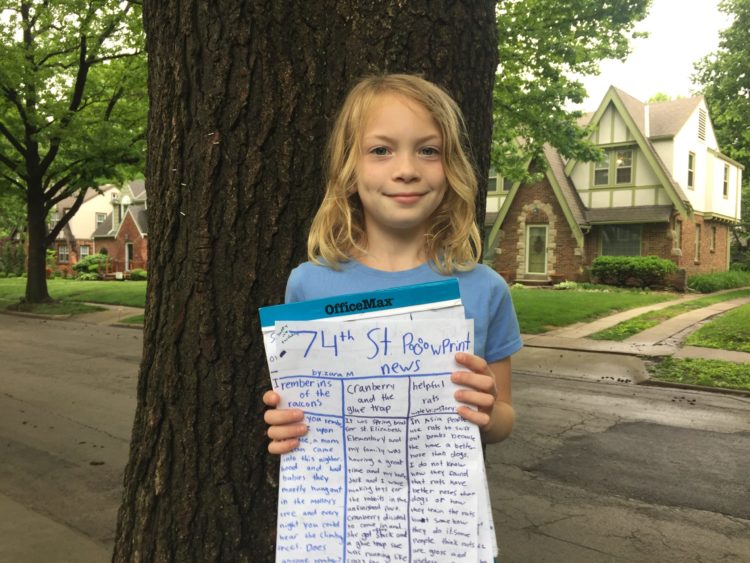 OfficeMax
74th St PawPrint
news
by: zara M
I rember ins
of the
raccons
you remb
upon
a mom
came
into this nighbor-
hood and had
babies they
mostly hung out
in the
tree and every
night you could
hear the climby
Does
anyone rember?
Cranberry
and the
glue trap
It was spring break
for St Elizabeth
Elementary and
my family was
having a great
time and my
Jack and I were
making toys for
the rabbits in the
unfinished part.
Cranberry dicided
to come in and
she got stuck and
a glue trap she
was running like
helpful
rats
In Asia People
use rats to sniff
out bombs because
the have a better
nose than dogs.
I do not know
how they found
that rats have
better noses than
dogs or how
they train the rats
but some how
they do it. Some
people think rats
are gross and
useless